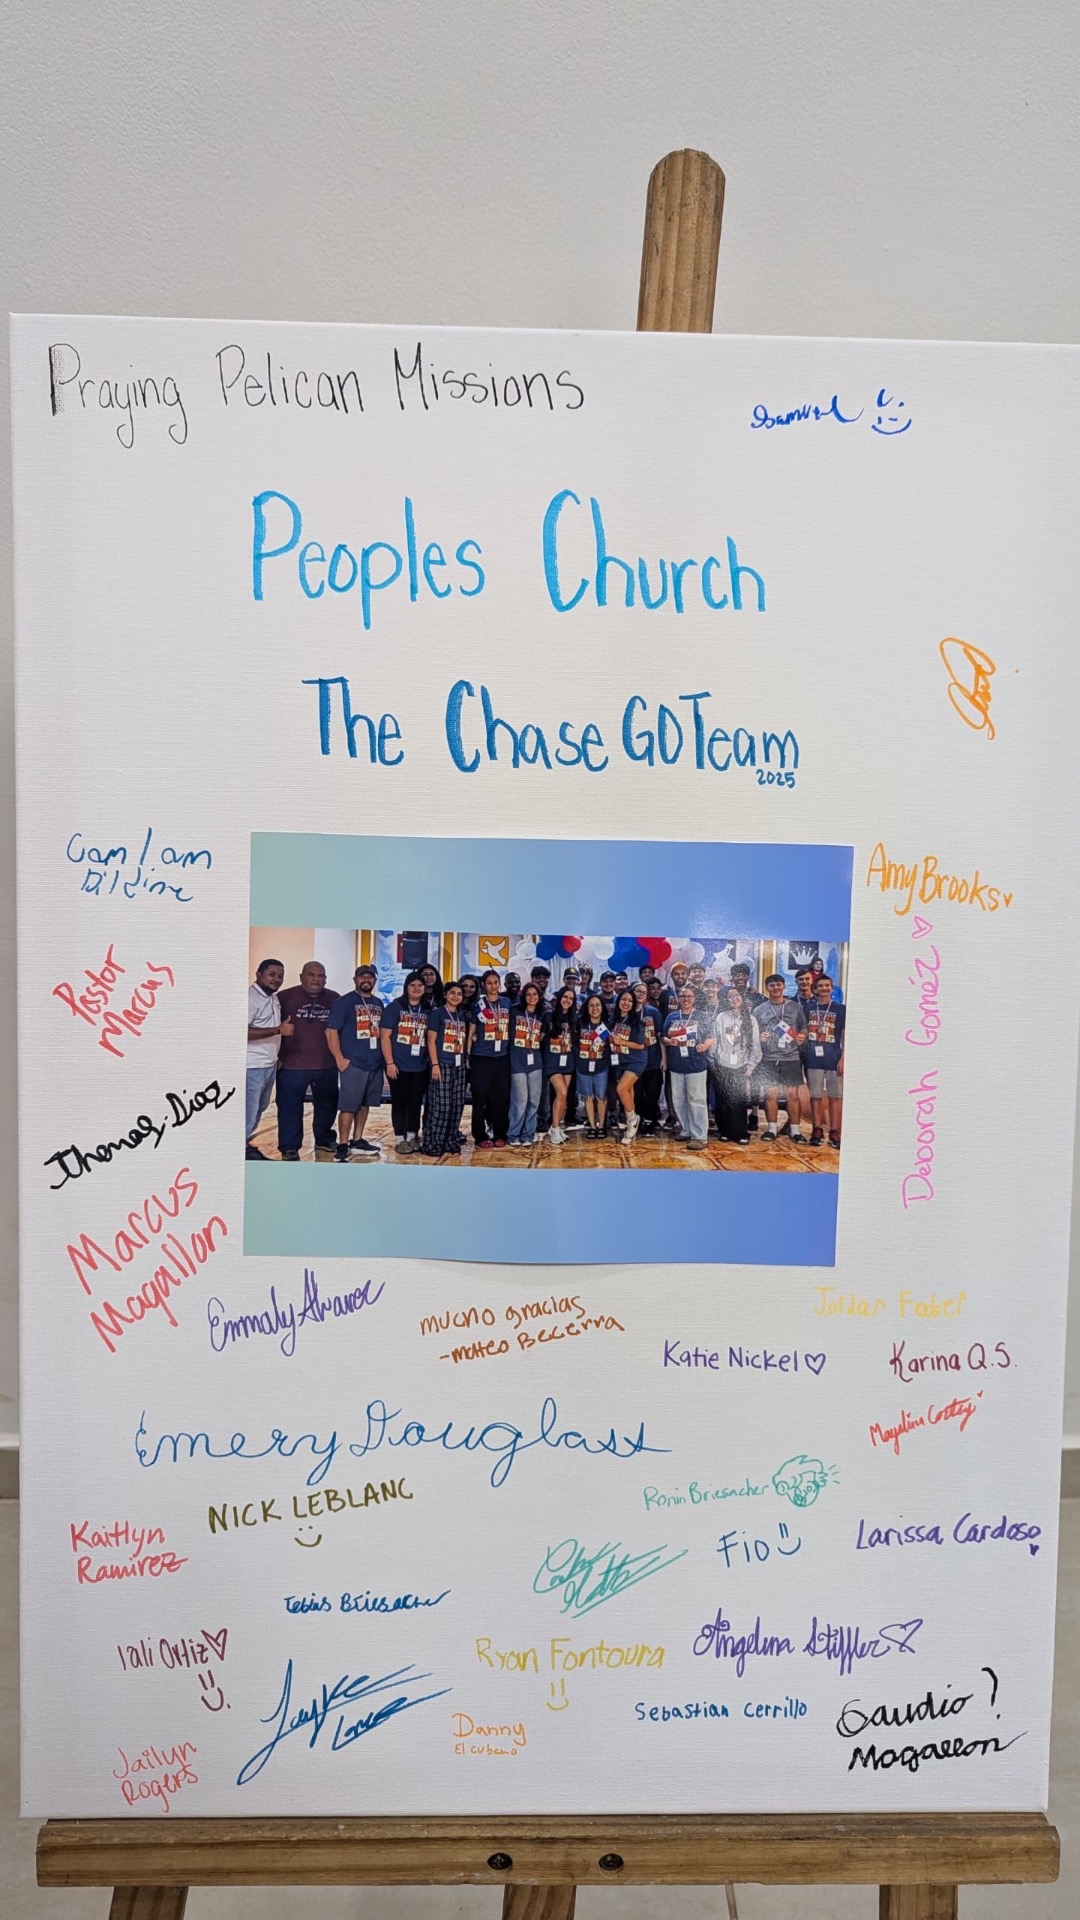 Praying Pelican Missions
Samuel
Peoples Church
The Chase GO Team
2025
Cam I am
Amy Brooks
Pastor
Marcus
Deborah Goméz
Thomas Diaz
Marcus
Magallon
Emmaly Alvarez
mucho gracias
-mateo Becerra
Jordan Faber
Katie Nickel
Karina Q.S.
Emery Douglass
NICK LEBLANC
Ronin Briesacher
Kaitlyn
Ramirez
FIO
Larissa Cardoso
Tobias Briesacher
Iali Ortiz
Ryan Fontoura
Angelina Stiffler
Sebastian Cerrillo
Gaudio
Magallon
Danny
El cubano
Jailyn
Rogers